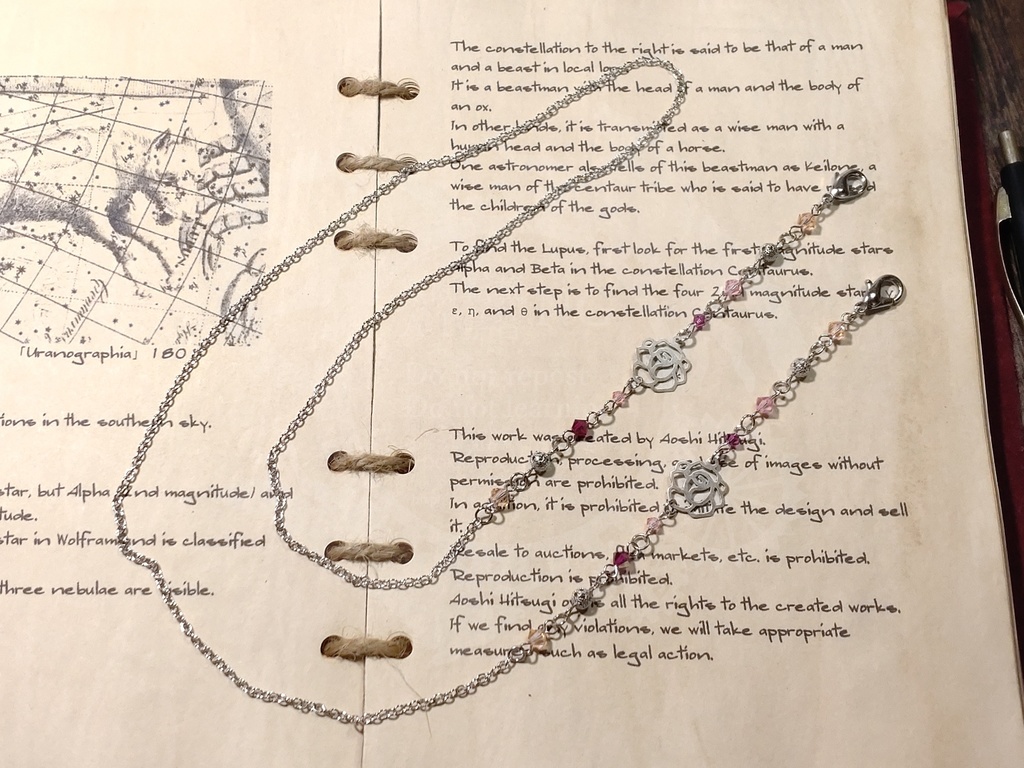 「Uranographia」 180
ions in the southern sky.
star, but Alpha 2nd magnitude) and
tude.
star in Wolfram and is classified
three nebulae are visible.
The constellation to the right is said to be that of a man
and a beast in local
It is a beastman with the head of a man and the body of
an ox.
In other it is transmitted as a wise man with a
human head and the body of a horse.
One astronomer also tells of this beastman as Keilone, a
wise man of the Centaur tribe who is said to have
the children of the gods.
To find the Lupus, first look for the first magnitude stars
Alpha and Beta in the constellation Centaurus.
The next step is to find the four 2nd magnitude star
ε, η, and θ in the constellation Centaurus.
This work was created by Aoshi Hitsugi.
Reproduction, processing, use of images without
permission are prohibited.
In addition, it is prohibited the design and sell
it.
Resale to auctions, flea markets, etc. is prohibited.
Reproduction is prohibited.
Aoshi Hitsugi owns all the rights to the created works.
If we find any violations, we will take appropriate
measures such as legal action.